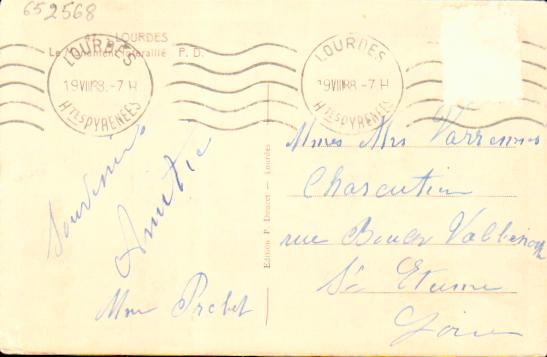 652568
LOURDES
Le Monument Interallié P. D.
LOURDES
19 VIII 38.-7 H
HTES PYRENEES
LOURDES
19 VIII 38 -7 H
HTES PYRENEES
Souvenir
Amitié
Mme
Edition P. Doucet - Lourdes
Mmes Mrs Varrennes
Charcutier
rue
St Etienne
Loire